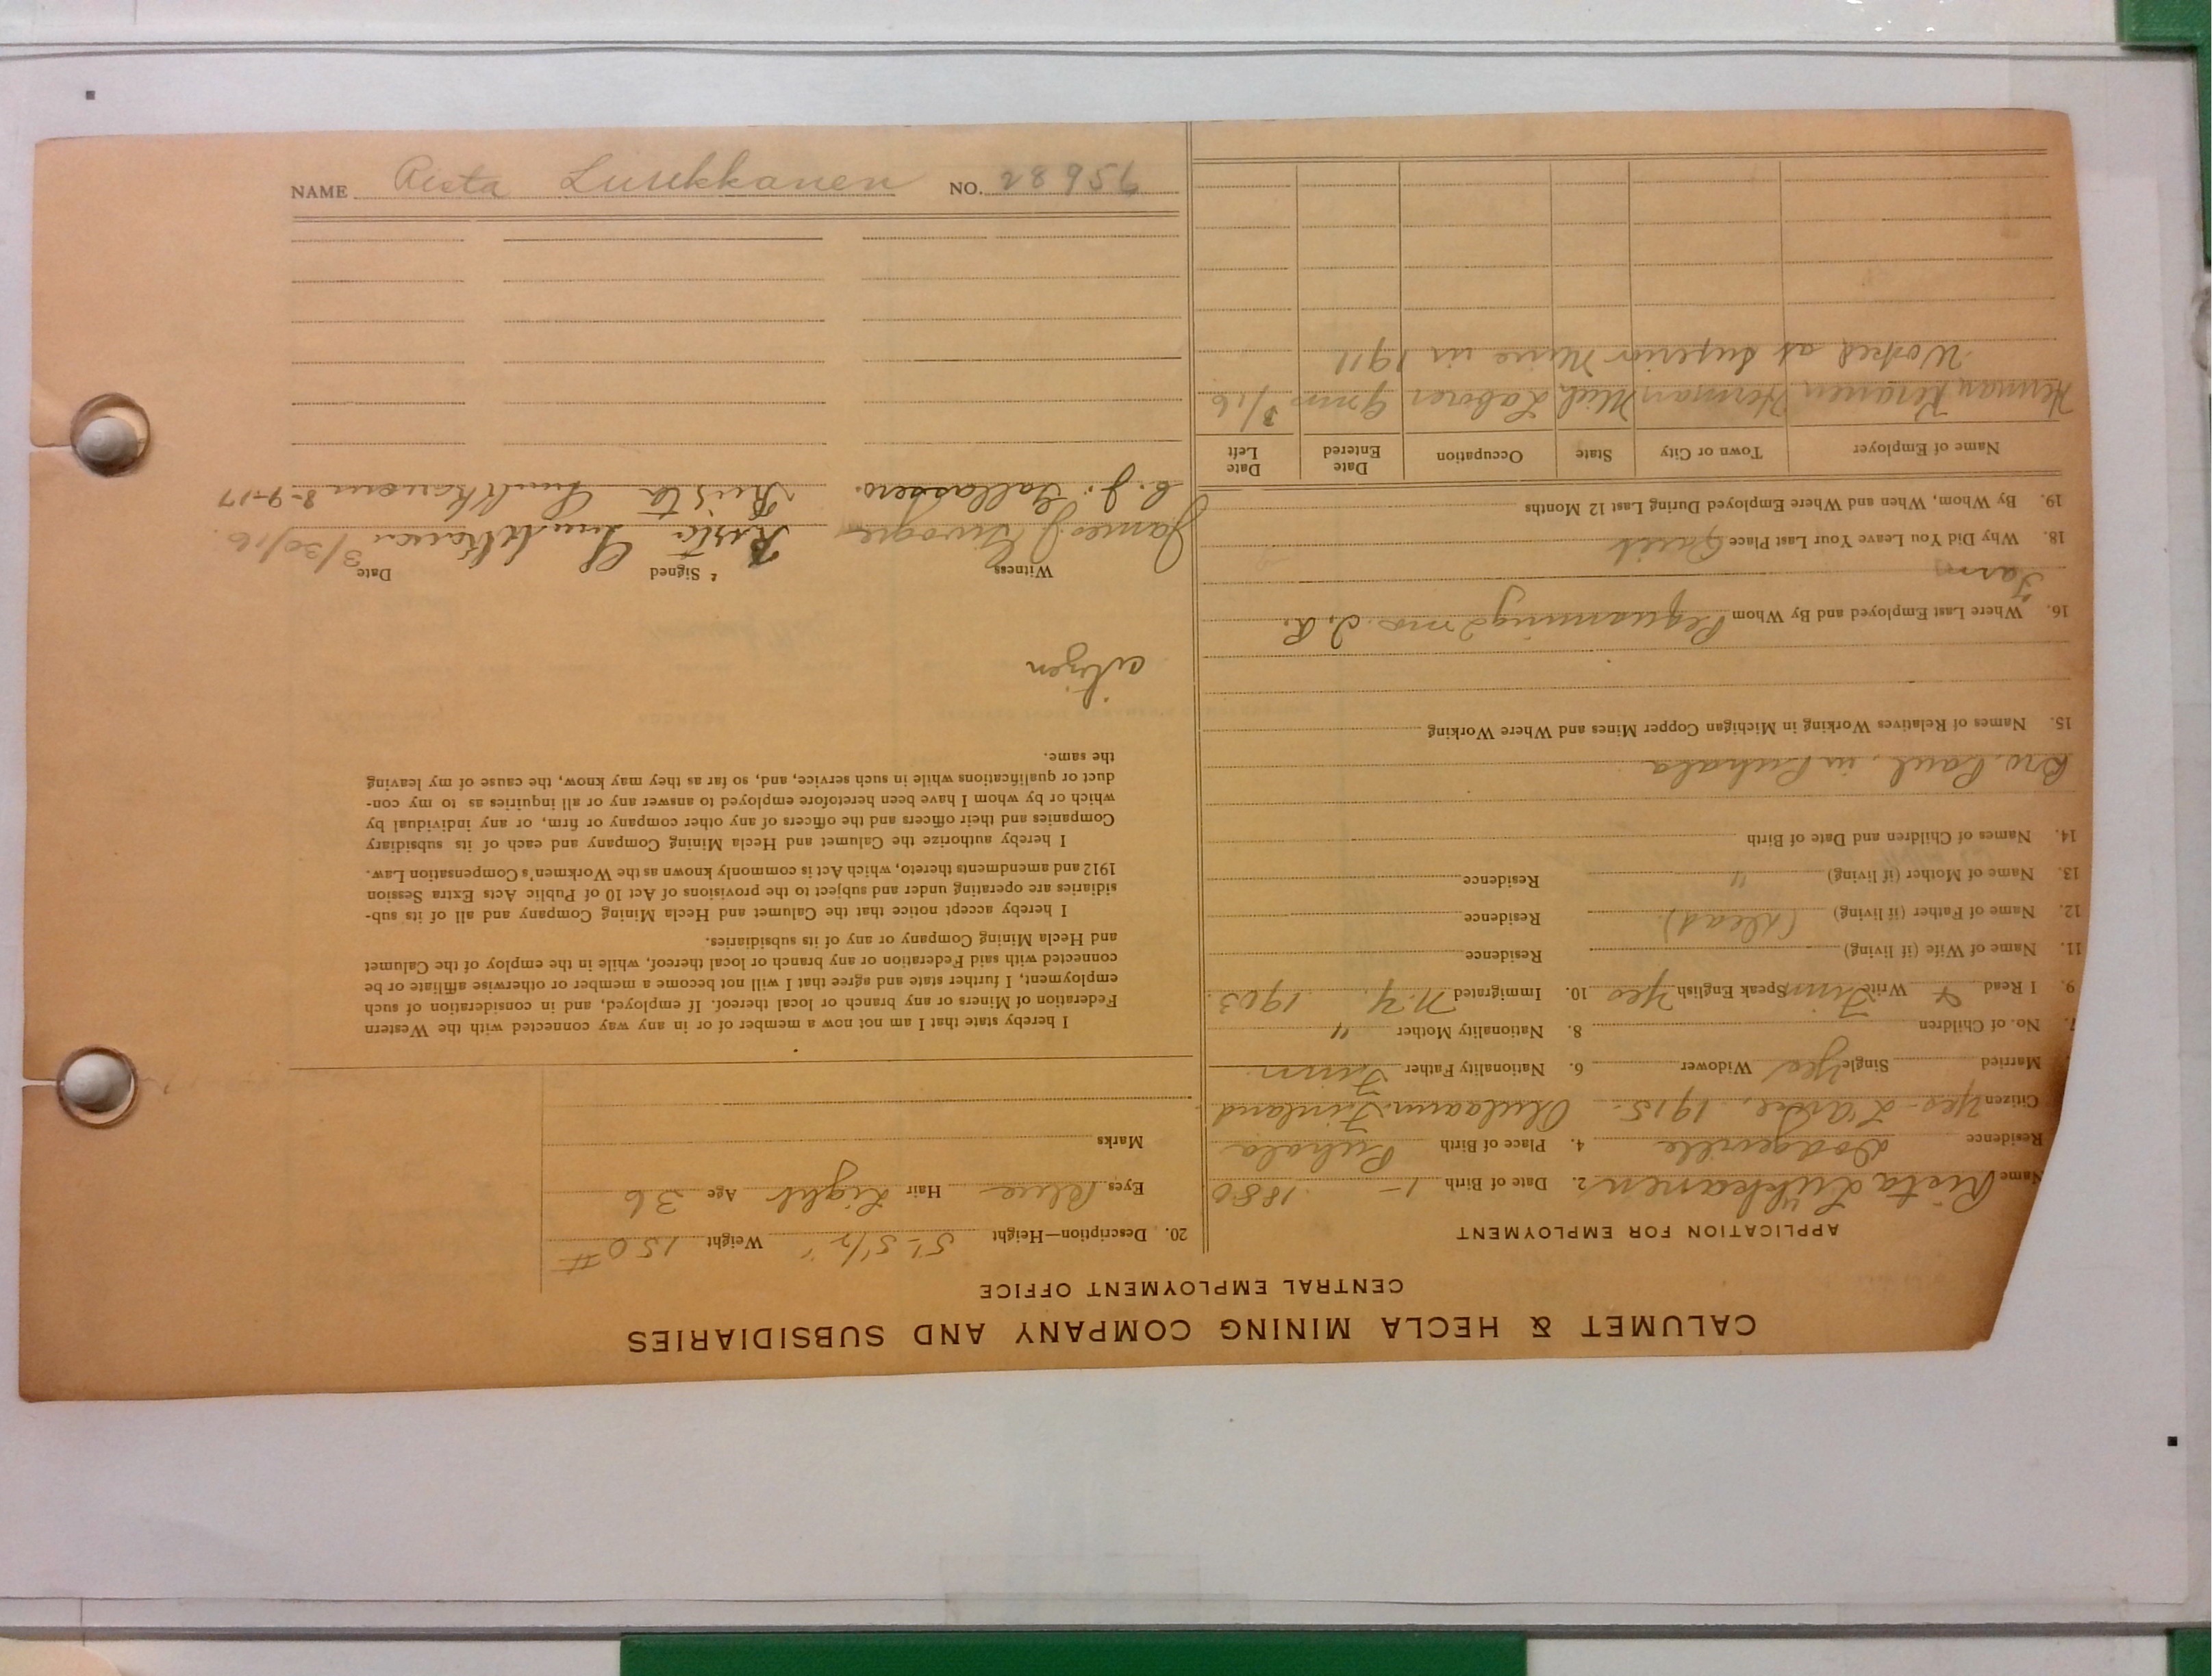 CALUMET & HECLA MINING COMPANY AND SUBSIDIARIES
CENTRAL EMPLOYMENT OFFICE
APPLICATION FOR EMPLOYMENT
Name Rista 2. Date of Birth 1- 1880
Residence Dodgeville 4. Place of Birth Puhala
Citizen Yes - L'anse, 1915. Finland
Married Single Yes Widower 6. Nationality Father Finn
7. No. of Children 8. Nationality Mother "
9. I Read & Write Finn Speak English Yes 10. Immigrated N.Y. 1903.
11. Name of Wife (if living) Residence
12. Name of Father (if living) (dead) Residence
13. Name of Mother (if living) " Residence
14. Names of Children and Date of Birth
Bro. Paul, in Puhala
15. Names of Relatives Working in Michigan Copper Mines and Where Working
16. Where Last Employed and By Whom Pequaming 2 mos.
Farm
18. Why Did You Leave Your Last Place Quit
19. By Whom, When and Where Employed During Last 12 Months
Name of Employer Town or City State Occupation Date Entered Date Left
Herman Keranen Herman Mich Laborer 3/16
Worked at Superior Mine in 1911
20. Description—Height 5'-5½" Weight 150#
Eyes Blue Hair Light Age 36
Marks
I hereby state that I am not now a member of or in any way connected with the Western
Federation of Miners or any branch or local thereof. If employed, and in consideration of such
employment, I further state and agree that I will not become a member or otherwise affiliate or be
connected with said Federation or any branch or local thereof, while in the employ of the Calumet
and Hecla Mining Company or any of its subsidiaries.
I hereby accept notice that the Calumet and Hecla Mining Company and all of its sub-
sidiaries are operating under and subject to the provisions of Act 10 of Public Acts Extra Session
1912 and amendments thereto, which Act is commonly known as the Workmen's Compensation Law.
I hereby authorize the Calumet and Hecla Mining Company and each of its subsidiary
Companies and their officers and the officers of any other company or firm, or any individual by
which or by whom I have been heretofore employed to answer any or all inquiries as to my con-
duct or qualifications while in such service, and, so far as they may know, the cause of my leaving
the same.
citizen
Witness Signed Date
James J. Rista 3/30/16.
C. J. Gallassero. Rista 8-9-17
NAME Rista Luukkanen NO. 28956